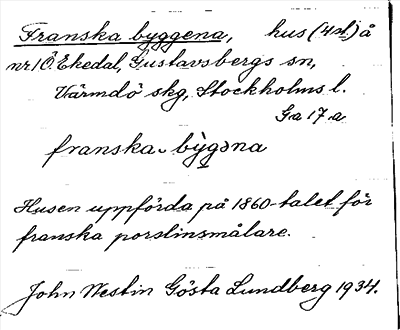 Franska byggena, hus (4 st.) å
nr 1 Ö. Ekedal, Gustavsbergs sn,
Värmdö skg, Stockholms l.
Ga 17 a
franska bỳgəna
Husen uppförda på 1860-talet för
franska porslinsmålare.
John Westin Gösta Lundberg 1934.